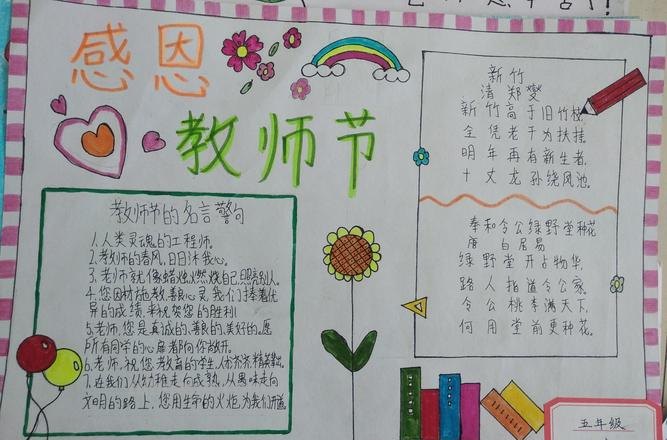 感恩
教师节
教师节的名言警句
1.人类灵魂的工程师。
2.教师的春风,日日沐我心。
3.老师就像蜡烛,燃烧自己,照亮别人。
4.您因材施教,善良心灵,我们捧着优
异的成绩,来祝贺您的胜利!
5.老师,您是真诚的、善良的、美好的。愿
所有同学的心扉都向你敞开。
6.老师,祝您教育的学生,人才齐齐,精英辈出。
7.在我们从幼稚走向成熟,从愚昧走向
文明的路上,您用生命的火炬,为我们开道
新竹
清 郑燮
新竹高于旧竹枝,
全凭老干为扶持。
明年再有新生者,
十丈龙孙绕凤池。
奉和令公绿野堂种花
唐 白居易
绿野堂开占物华,
路人指道令公家。
令公桃李满天下,
何用堂前更种花。
五年级